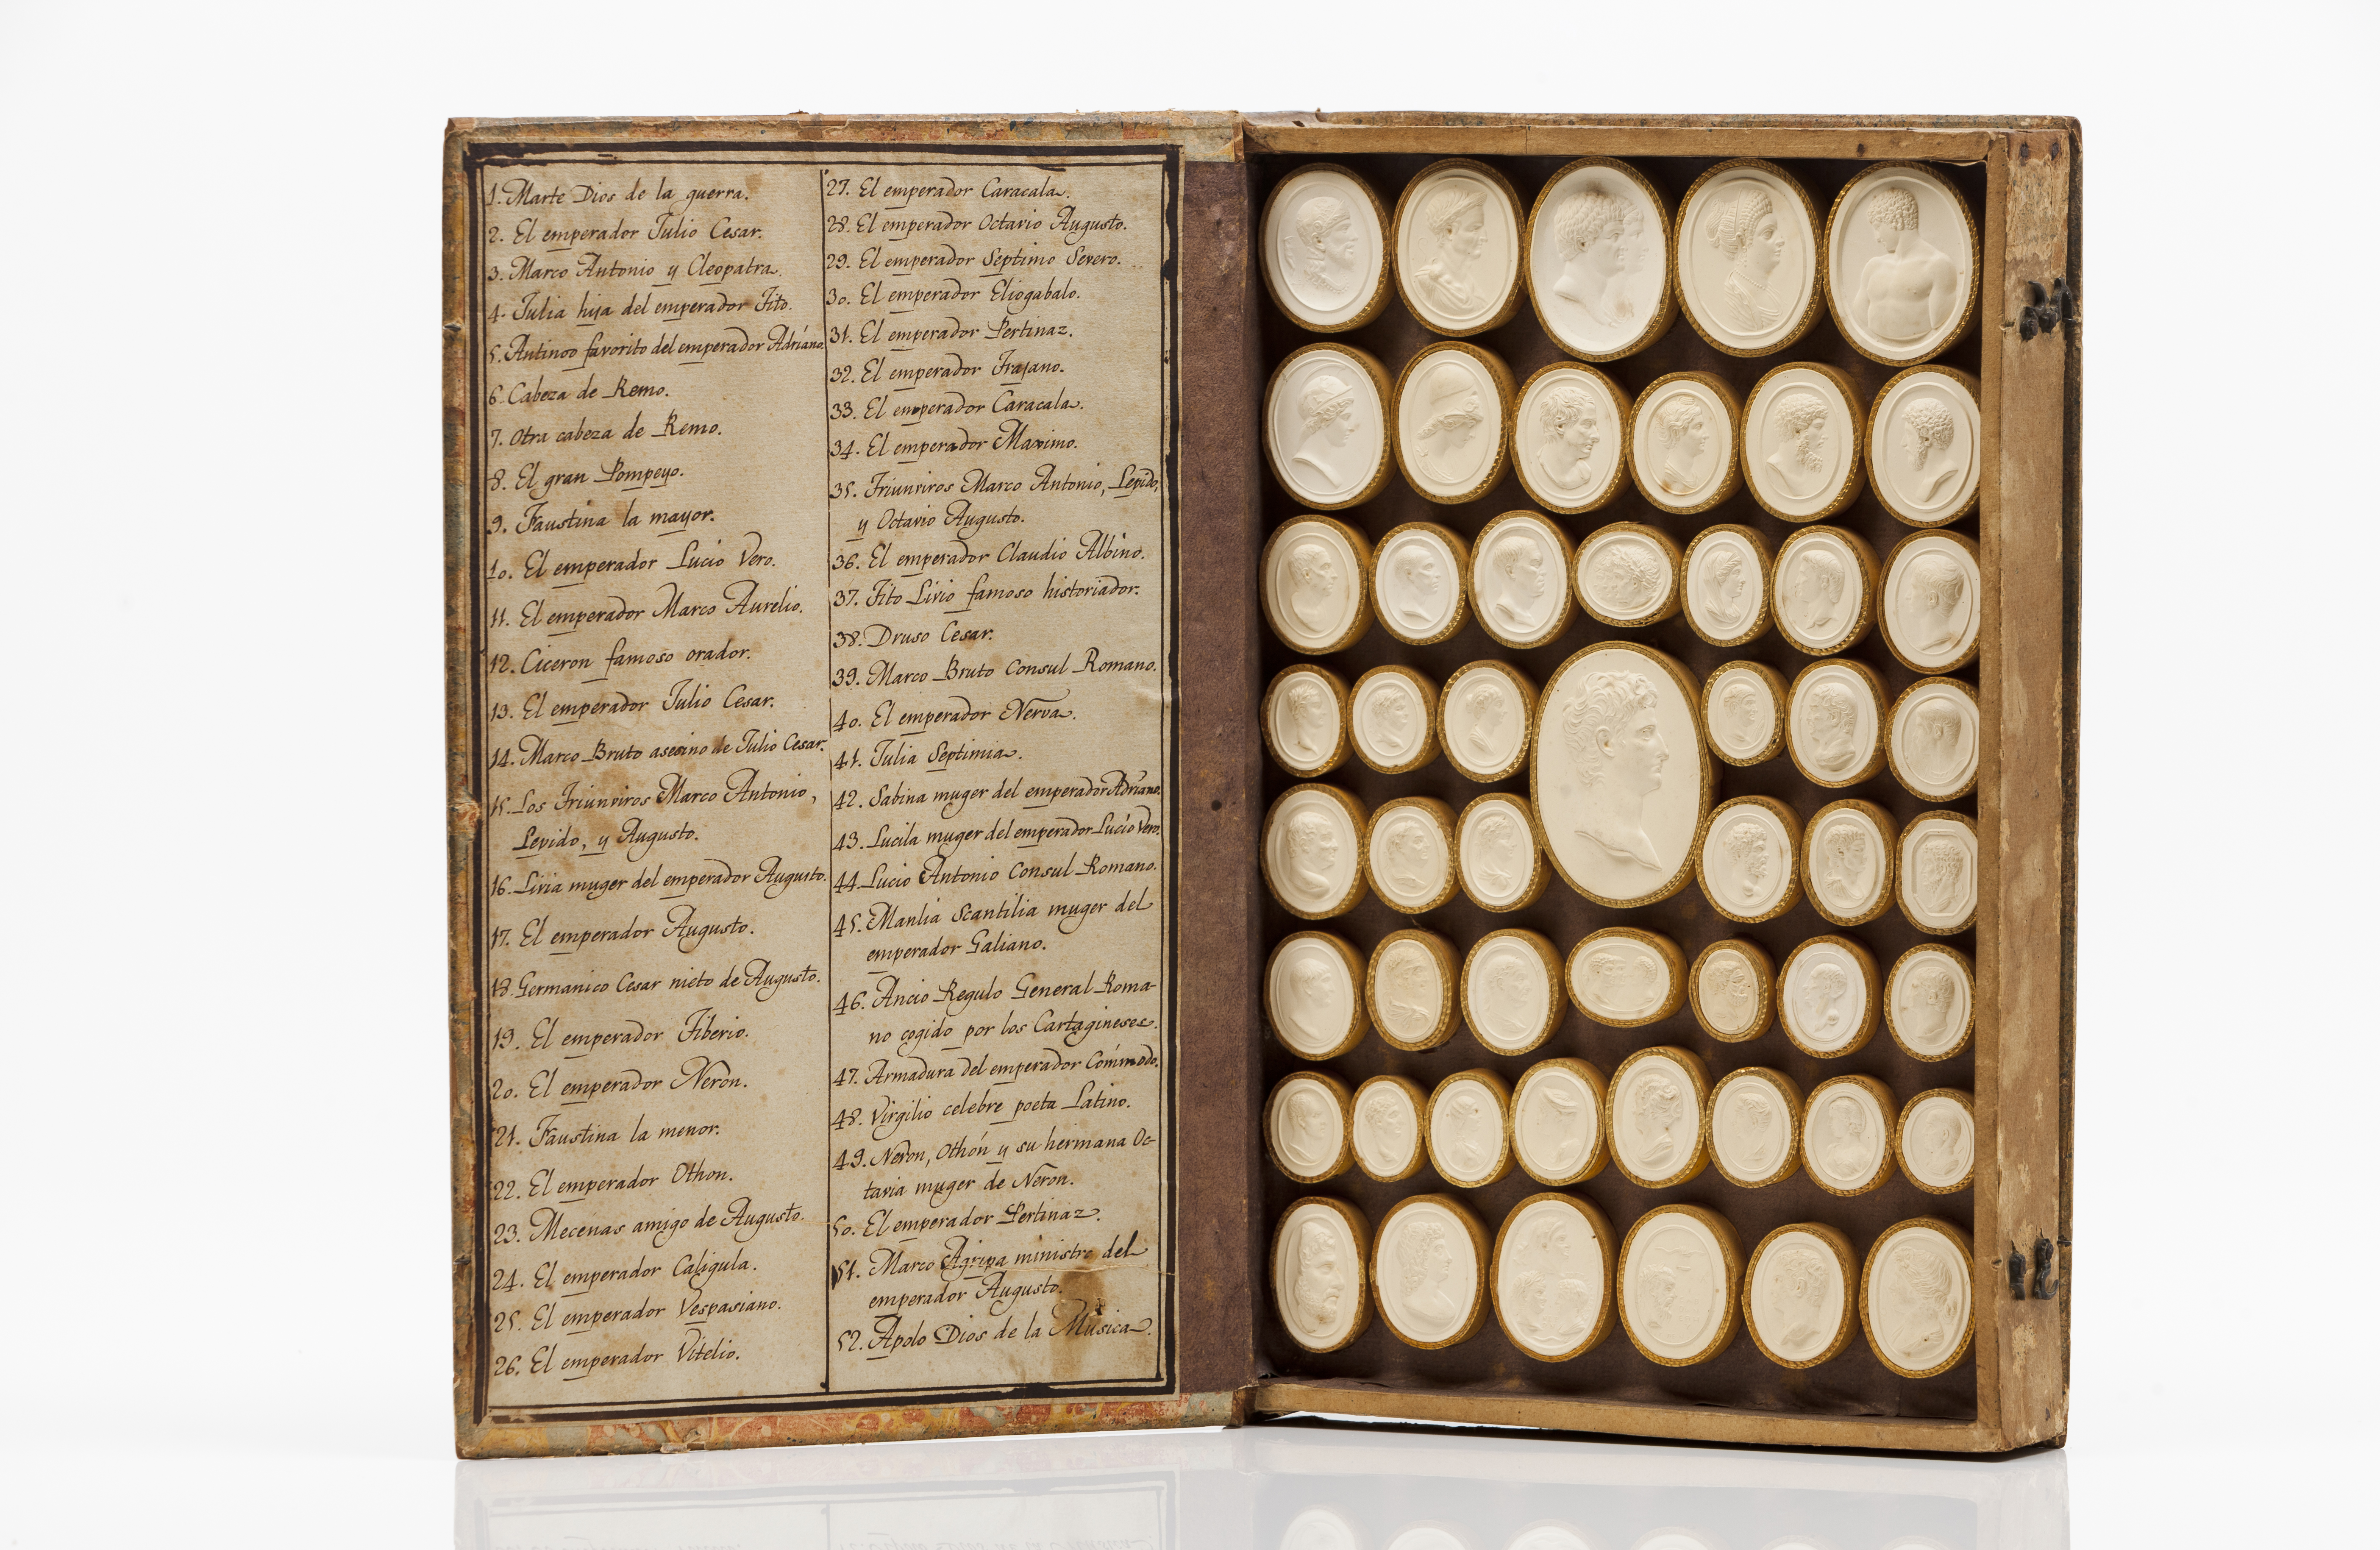 1. Marte Dios de la guerra.
2. El emperador Julio Cesar.
3. Marco Antonio y Cleopatra.
4. Julia hija del emperador Tito.
5. Antinoo favorito del emperador Adriano.
6. Cabeza de Remo.
7. Otra cabeza de Remo.
8. El gran Pompeyo.
9. Faustina la mayor.
10. El emperador Lucio Vero.
11. El emperador Marco Aurelio.
12. Ciceron famoso orador.
13. El emperador Julio Cesar.
14. Marco Bruto asesino de Julio Cesar.
15. Los Triunviros Marco Antonio,
Lepido, y Augusto.
16. Livia muger del emperador Augusto.
17. El emperador Augusto.
18. Germanico Cesar nieto de Augusto.
19. El emperador Tiberio.
20. El emperador Neron.
21. Faustina la menor.
22. El emperador Othon.
23. Mecenas amigo de Augusto.
24. El emperador Caligula.
25. El emperador Vespasiano.
26. El emperador Vitelio.
27. El emperador Caracala.
28. El emperador Octavio Augusto.
29. El emperador Septimo Severo.
30. El emperador Eliogabalo.
31. El emperador Pertinaz.
32. El emperador Trajano.
33. El emperador Caracala.
34. El emperador Maximo.
35. Triunviros Marco Antonio, Lepido,
y Octavio Augusto.
36. El emperador Claudio Albino.
37. Tito Livio famoso historiador.
38. Druso Cesar.
39. Marco Bruto Consul Romano.
40. El emperador Nerva.
41. Julia Septimia.
42. Sabina muger del emperador Adriano.
43. Lucila muger del emperador Lucio Vero.
44. Lucio Antonio Consul Romano.
45. Manlia Scantilia muger del
emperador Galiano.
46. Ancio Regulo General Roma-
no cogido por los Cartagineses.
47. Armadura del emperador Cómmodo.
48. Virgilio celebre poeta Latino.
49. Neron, Othón y su hermana Oc-
tavia muger de Neron.
50. El emperador Pertinaz.
51. Marco Agripa ministro del
emperador Augusto.
52. Apolo Dios de la Musica.